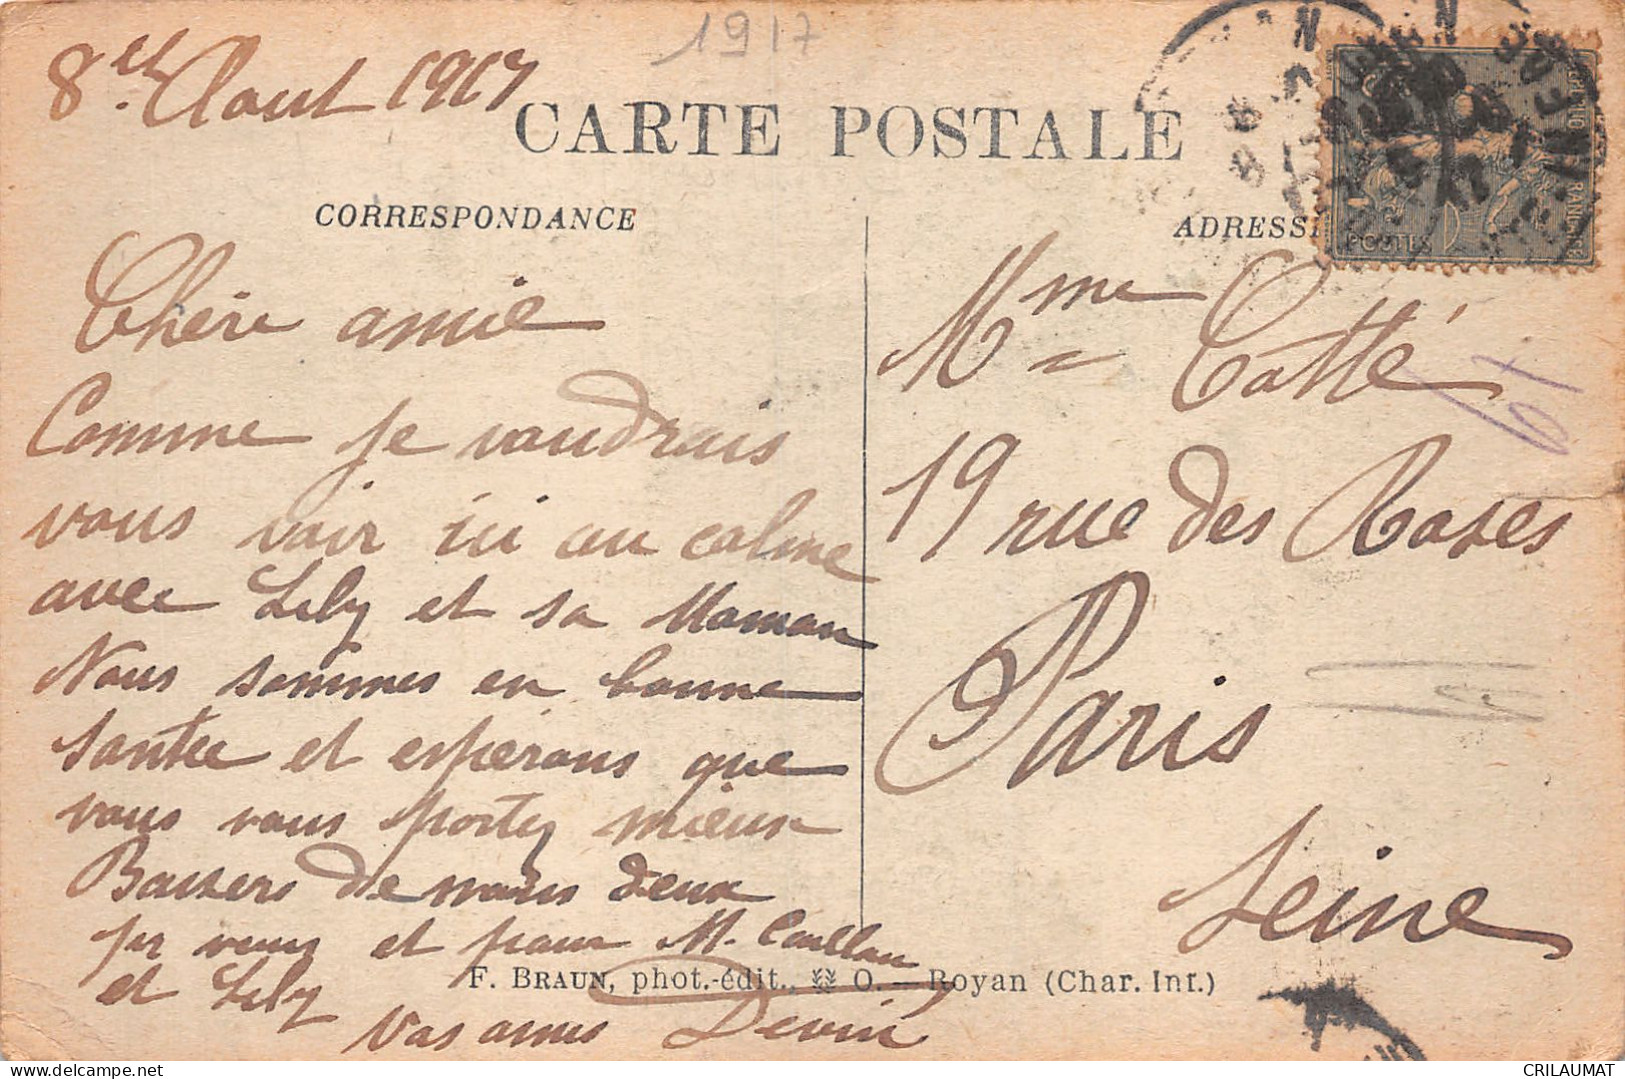 1917
8 et Aout 1917
CARTE POSTALE
CORRESPONDANCE
ADRESSE
POSTES
Chère amie
Comme je voudrais
vous voir ici au calme
avec Lily et sa Maman
Nous sommes en bonne
santée et espérons que
vous vous portez mieux
Baisers de nous deux
pr vous et pour M.
et Lily
Vos amis Devin
Mme Cotté
19 rue des Roses
Paris
Seine
67
F. BRAUN, phot.-édit., O. — Royan (Char. Inf.)
CRILAUMAT